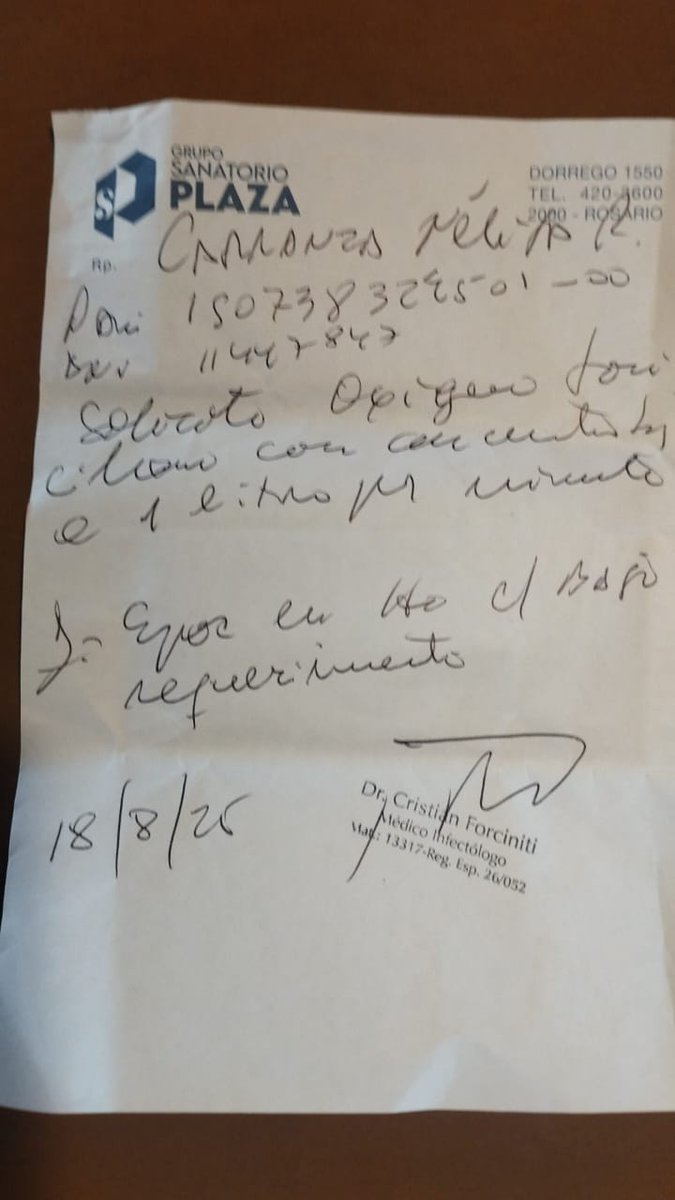 GRUPO
SANATORIO
PLAZA
DORREGO 1550
TEL. 420-3600
2000 - ROSARIO
Rp.
CARRANZA Nélida R.
Pami 150738329501-00
DNI 11447847
Solicito Oxigeno Domi
ciliario con concentrador
a 1 litro por minuto
D:- Epoc en tto c/ BAJO
requerimiento
18/8/25
Dr. Cristian Forciniti
Médico Infectólogo
Mat.: 13317-Reg. Esp. 26/052